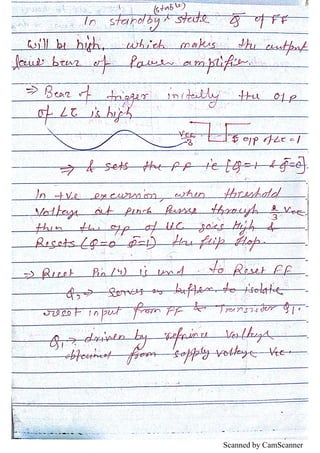 (stable)
In standby state Q̅ of FF
will be high, which makes the output
low bcaz of Power amplifier.
⇒ Bcaz of trigger initally the o/p
of LC is high
Vcc/3
$ o/p of LC = 1
⇒ & sets the FF ie [Q=1 & Q̅=0]
In +ve excursion, when threshold
Voltage at pin 6 passes through 2/3 Vcc
then the o/p of UC goes High &
Resets (Q=0 Q̅=1) the flip flop.
⇒ Reset Pin (4) is used to Reset FF
Q2 ⇒ serves as buffer to isolate
reset input from FF & Transistor Q1.
Q1 ⇒ driven by refrince Voltage
obtained from supply voltage Vcc.
Scanned by CamScanner